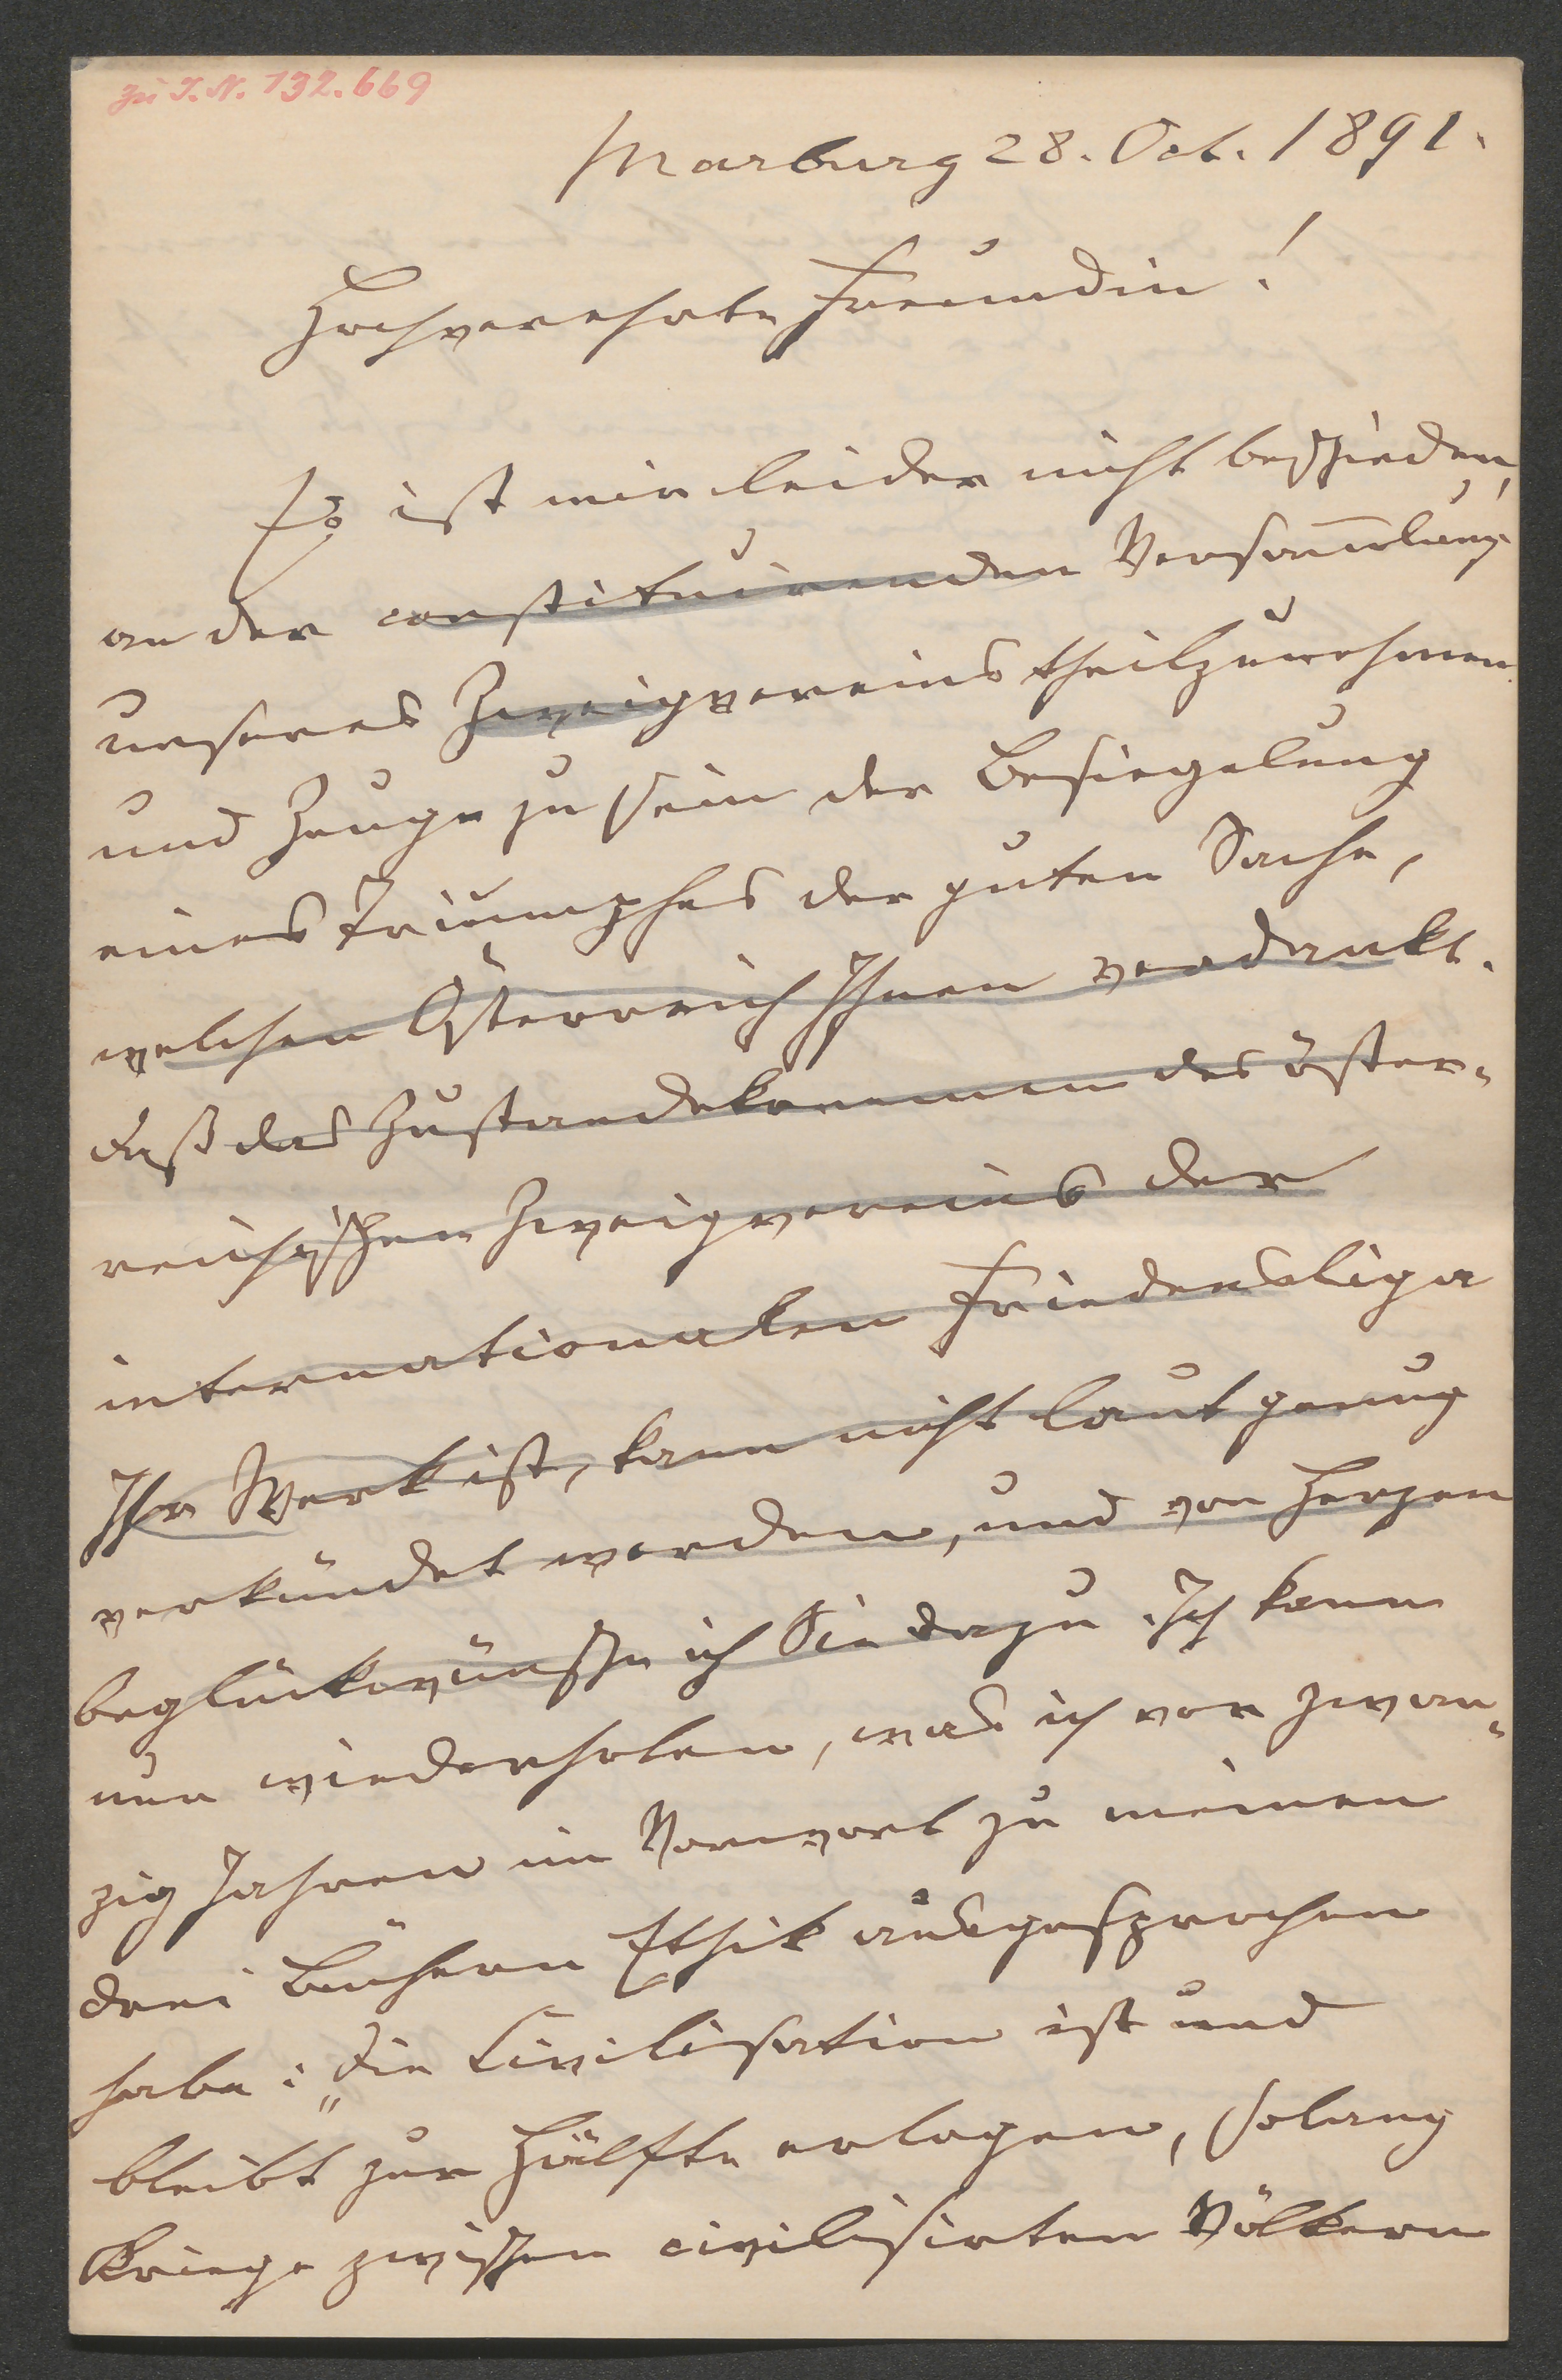 zu I.N. 132.669
Marburg 28. Oct. 1891.
Hochverehrte Freundin!
Es ist mir leider nicht beschieden,
an der constituirenden Versam̅lung
unseres Zweigvereins theilzunehmen
und Zeuge zu sein der Besiegelung
eines Triumphes der guten Sache,
welchen Österreich Ihnen verdankt.
Daß das Zustandekommen des öster-
reichischen Zweigvereins der
internationalen Friedensliga
Ihr Werk ist, kann nicht laut genug
verkündet werden, und von Herzen
beglückwünsche ich Sie dazu. Ich kann
nur wiederholen, was ich vor zwan-
zig Jahren im Vorwort zu meinen
drei Büchern Ethik ausgesprochen
habe: „Die Civilisation ist und
bleibt zur Hälfte erlogen, solang
Kriege zwischen civilisirten Völkern